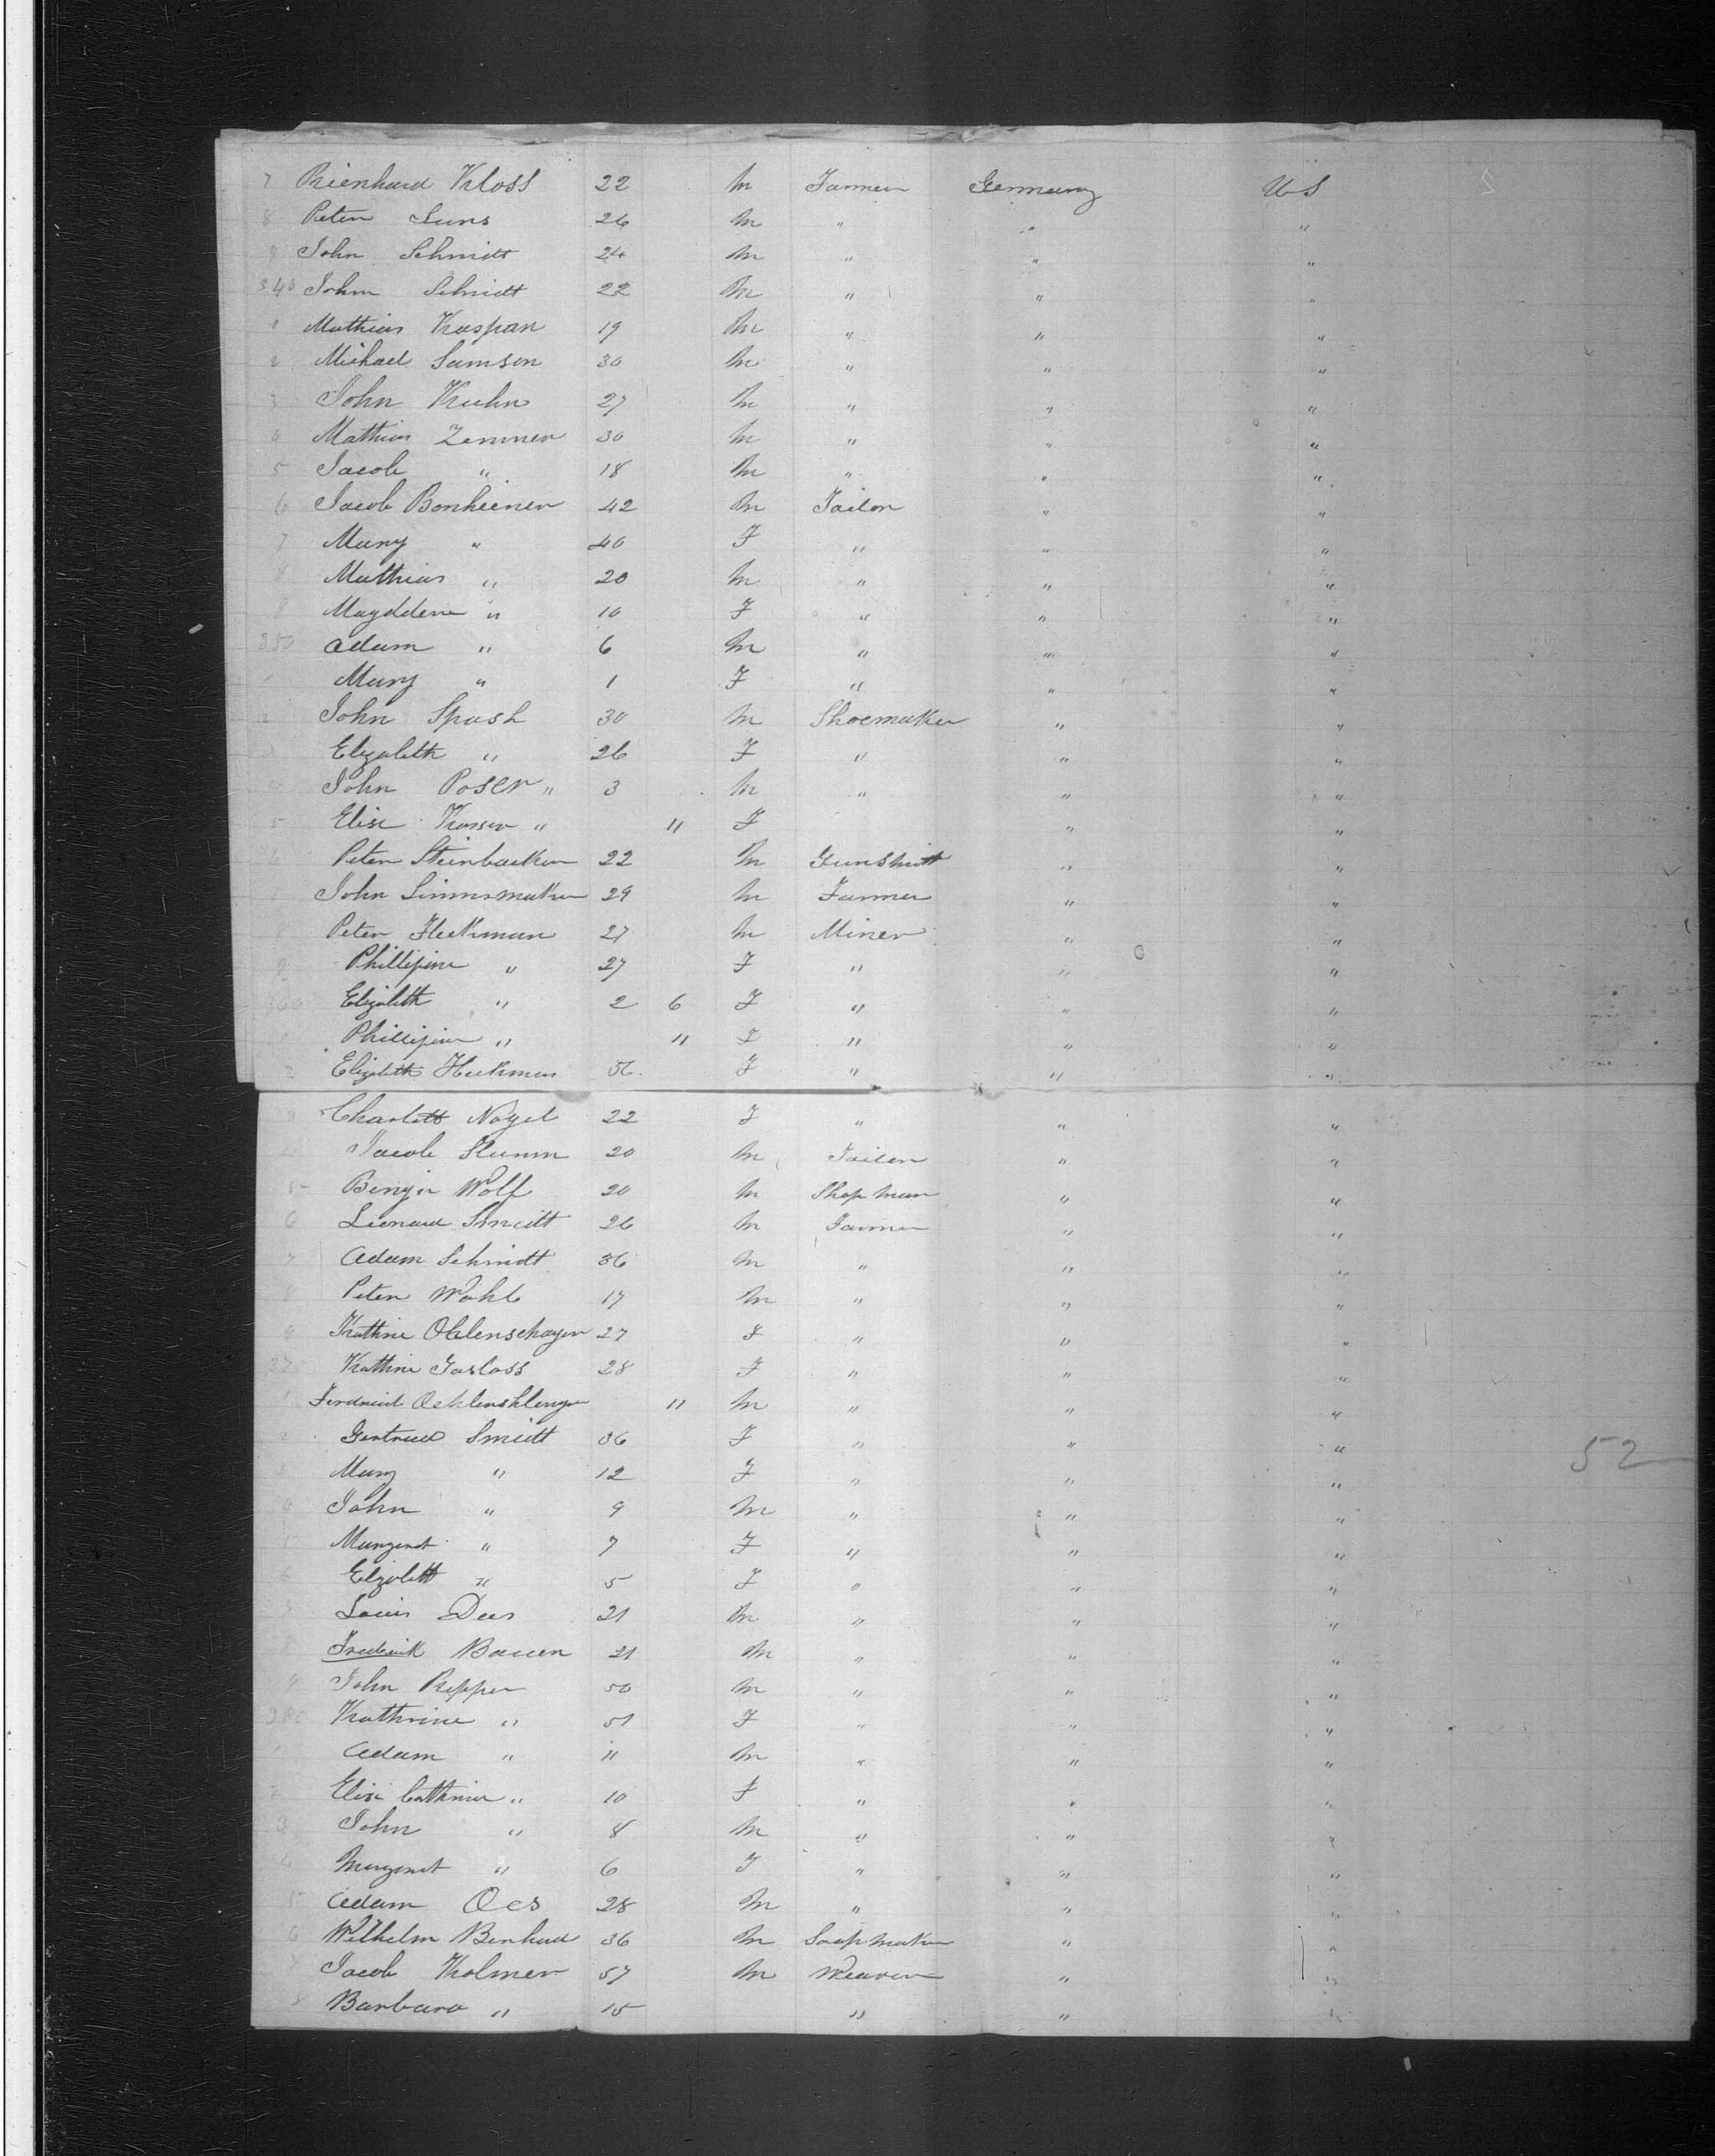 7 Rienhard Kloss 22 M Farmer Germany U S
8 Peter Suns 26 M " " "
9 John Schmidt 24 M " " "
340 John Schmidt 22 M " " "
1 Mathias Kaspar 19 M " " "
2 Michael Samson 30 M " " "
3 John Kuhn 27 M " " "
4 Mathias Zimmer 30 M " " "
5 Jacob " 18 M " " "
6 Jacob Bonheimer 42 M Tailor " "
7 Mary " 40 F " " "
8 Mathias " 20 M " " "
9 Magddene " 10 F " " "
350 Adam " 6 M " " "
1 Mary " 1 F " " "
2 John Spash 30 M Shoemaker " "
Elizabeth " 26 F " " "
John Poser " 3 M " " "
5 Elise " 11 F " "
6 Peter Steinbacker 22 M Gunsmith " "
John 29 M Farmer " "
Peter Heckman 27 M Miner " "
9 Phillipine " 27 F " " "
360 Elizabeth " 2 6 F " " "
Phillipine " 11 F " " "
2 Elizabeth Heckman 56 F " " "
3 Charlott Nagel 22 F " " "
4 Jacob Stumm 20 M Tailor " "
5 Benjn Wolf 20 M Shop man " "
6 Leonard Smidt 26 M Farmer " "
7 Adam Schmidt 36 M " " "
8 Peter Wahl 17 M " " "
9 Kathrine 27 F " " "
370 Kathrine Garloss 28 F " " "
1 11 M " " "
2 Gertrud Smidt 36 F " " " 52
3 Mary " 12 F " " "
4 John " 9 M " " "
5 Margaret " 7 F " " "
6 Elizabeth " 5 F " " "
Louis Dees 21 M " " "
Frederick Bauer 21 M " " "
9 John Repper 50 M " " "
380 Kathrine " 51 F " " "
1 Adam " 11 M " " "
2 Elise Cathrine " 10 F " " "
3 John " 8 M " " "
4 Margaret " 6 F " " "
5 Adam Oes 28 M " " "
6 Wilhelm Benhard 36 M Soap maker " "
7 Jacob Kolmer 57 M Weaver " "
8 Barbara " 15 " " "